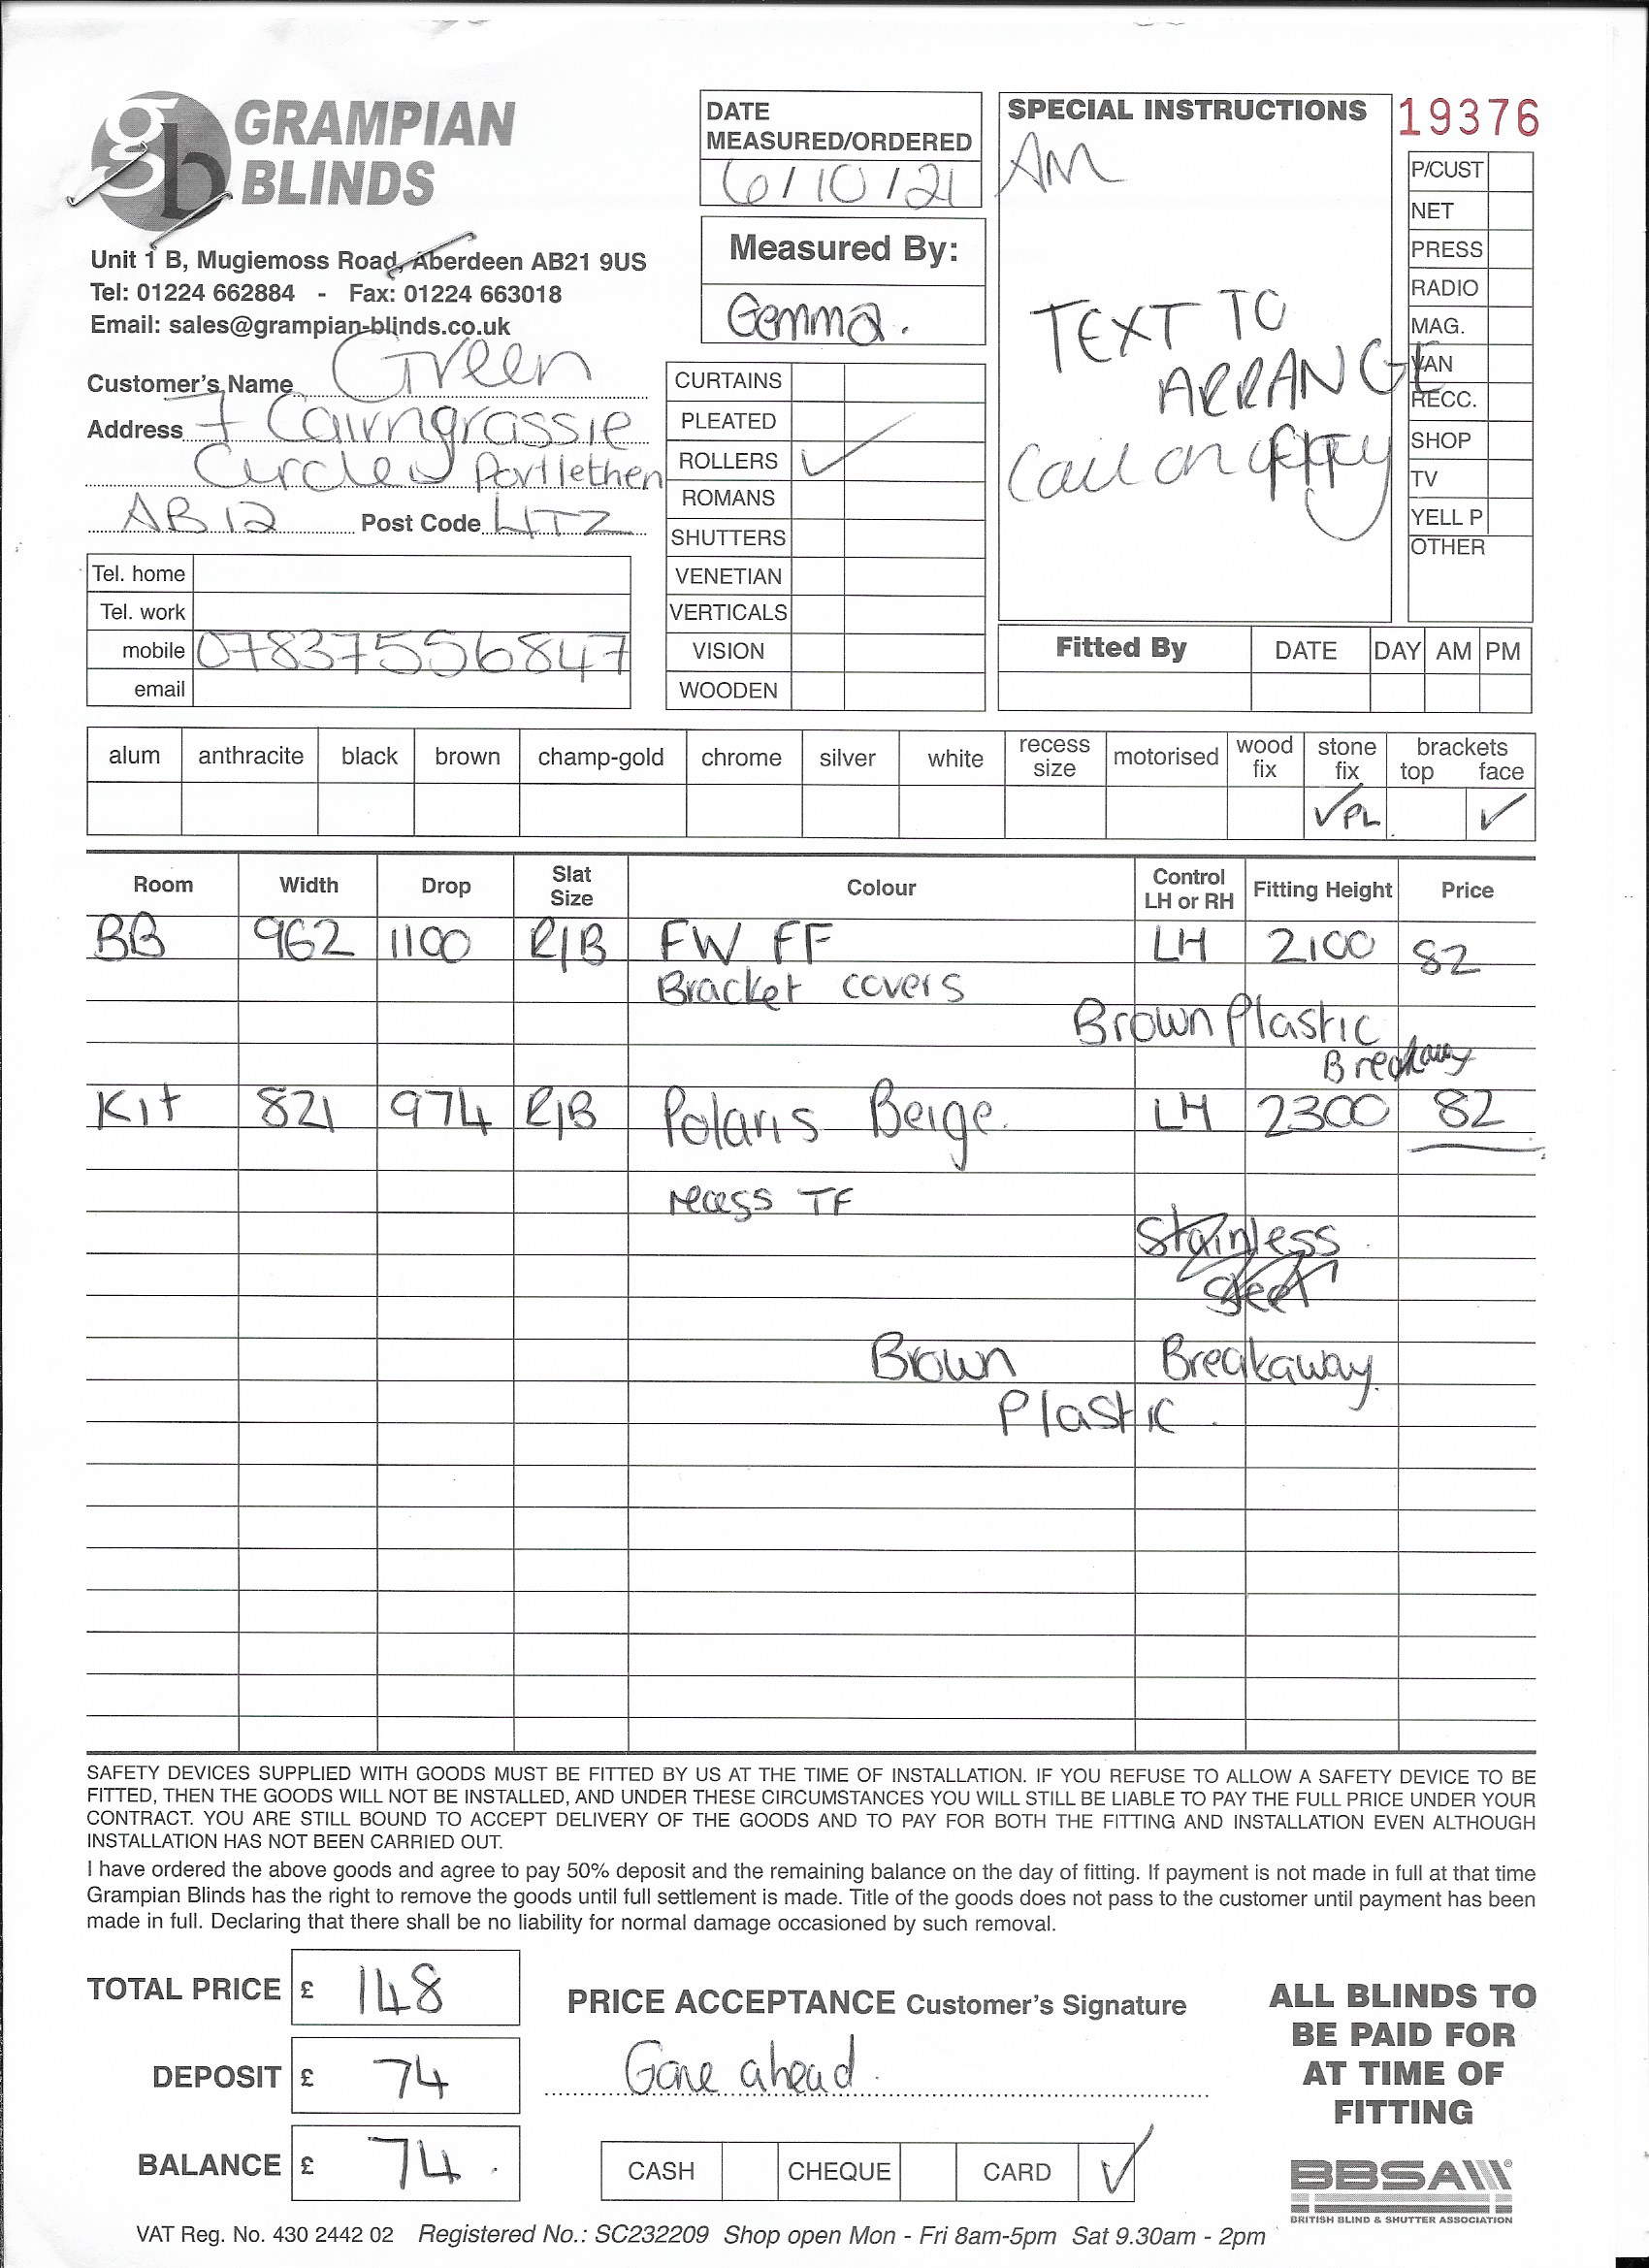 GRAMPIAN
BLINDS
gb
Unit 1 B, Mugiemoss Road, Aberdeen AB21 9US
Tel: 01224 662884 - Fax: 01224 663018
Email: sales@grampian-blinds.co.uk
Customer's Name Green
Address 7 Cairngrassie
Circle Portlethen
AB12 Post Code 4TZ
Tel. home
Tel. work
mobile 07837556847
email
DATE
MEASURED/ORDERED
6/10/21
Measured By:
Gemma.
CURTAINS
PLEATED
ROLLERS ✓
ROMANS
SHUTTERS
VENETIAN
VERTICALS
VISION
WOODEN
SPECIAL INSTRUCTIONS
AM
TEXT TO
ARRANGE
Call on
19376
P/CUST
NET
PRESS
RADIO
MAG.
VAN
RECC.
SHOP
TV
YELL P
OTHER
Fitted By DATE DAY AM PM
alum anthracite black brown champ-gold chrome silver white recess size motorised wood fix stone fix brackets top face
✓ PL ✓
Room Width Drop Slat Size Colour Control LH or RH Fitting Height Price
BB 962 1100 R/B FW FF LH 2100 82
Bracket covers
Brown Plastic
Breakaway
Kit 821 974 R/B Polaris Beige. LH 2300 82
recess TF
Stainless
Steel
Brown Breakaway.
Plastic.
SAFETY DEVICES SUPPLIED WITH GOODS MUST BE FITTED BY US AT THE TIME OF INSTALLATION. IF YOU REFUSE TO ALLOW A SAFETY DEVICE TO BE
FITTED, THEN THE GOODS WILL NOT BE INSTALLED, AND UNDER THESE CIRCUMSTANCES YOU WILL STILL BE LIABLE TO PAY THE FULL PRICE UNDER YOUR
CONTRACT. YOU ARE STILL BOUND TO ACCEPT DELIVERY OF THE GOODS AND TO PAY FOR BOTH THE FITTING AND INSTALLATION EVEN ALTHOUGH
INSTALLATION HAS NOT BEEN CARRIED OUT.
I have ordered the above goods and agree to pay 50% deposit and the remaining balance on the day of fitting. If payment is not made in full at that time
Grampian Blinds has the right to remove the goods until full settlement is made. Title of the goods does not pass to the customer until payment has been
made in full. Declaring that there shall be no liability for normal damage occasioned by such removal.
TOTAL PRICE £ 148
DEPOSIT £ 74
BALANCE £ 74.
PRICE ACCEPTANCE Customer's Signature
Gave ahead.
CASH CHEQUE CARD ✓
ALL BLINDS TO
BE PAID FOR
AT TIME OF
FITTING
BBSA
BRITISH BLIND & SHUTTER ASSOCIATION
VAT Reg. No. 430 2442 02 Registered No.: SC232209 Shop open Mon - Fri 8am-5pm Sat 9.30am - 2pm